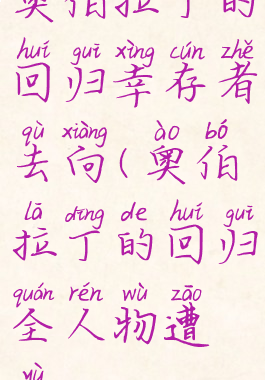 奥伯拉丁的
huí guī xìng cún zhě
回归幸存者
qù xiàng ào bó
去向(奥伯
lā dīng de huí guī
拉丁的回归
quán rén wù zāo
全人物遭
yù